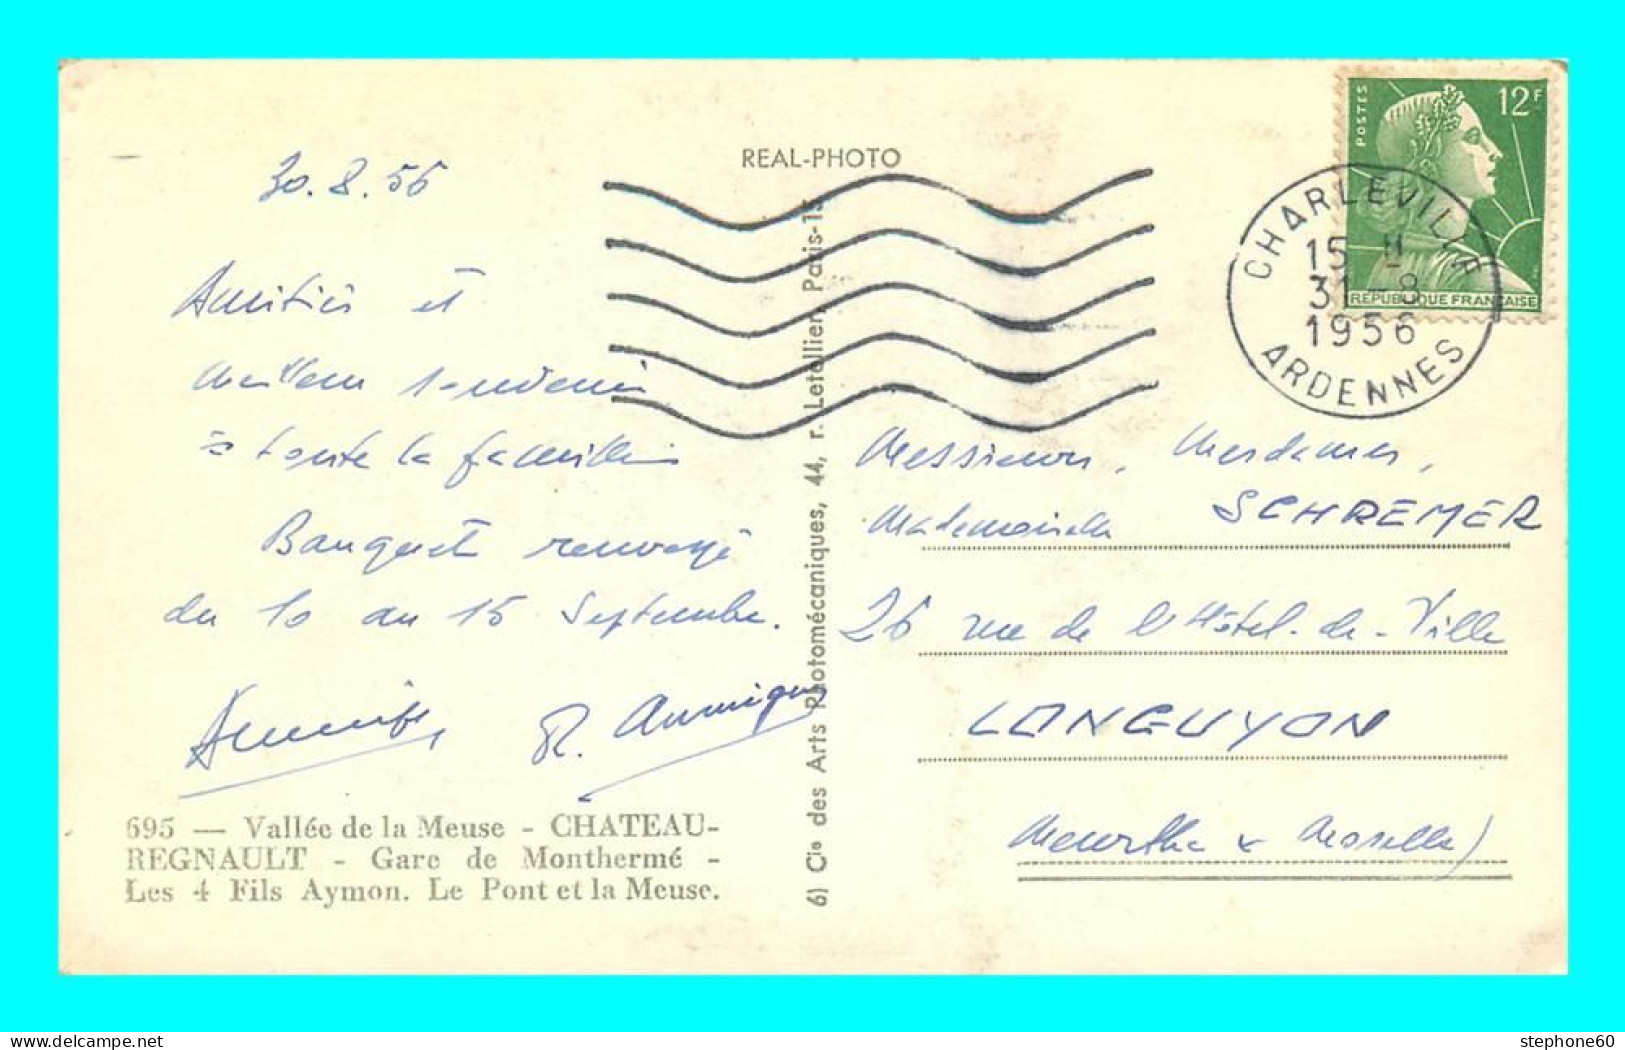 REAL-PHOTO
30.8.56
Amitiés et
meilleurs souvenirs
à toute la famille
Banquet renvoyé
du 10 au 15 Septembre.
R.
695 — Vallée de la Meuse - CHATEAU-
REGNAULT - Gare de Monthermé -
Les 4 Fils Aymon. Le Pont et la Meuse.
6) Cie des Arts Photomécaniques, 44, r. Letellier, Paris-15
POSTES
12F
REPUBLIQUE FRANCAISE
CHARLEVILLE
15 H
31 - 8
1956
ARDENNES
Messieurs, Mesdames,
Mademoiselle SCHREMER
26 rue de l'Hôtel-de-Ville
LONGUYON
Meurthe & Moselle)
stephone60